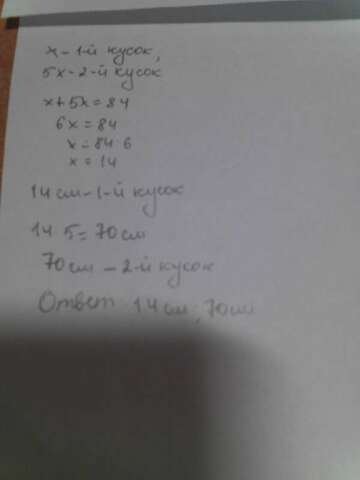 x - 1-й кусок,
5x - 2-й кусок
x + 5x = 84
6x = 84
x = 84 : 6
x = 14
14 см - 1-й кусок
14 · 5 = 70 см
70 см - 2-й кусок
Ответ: 14 см; 70 см